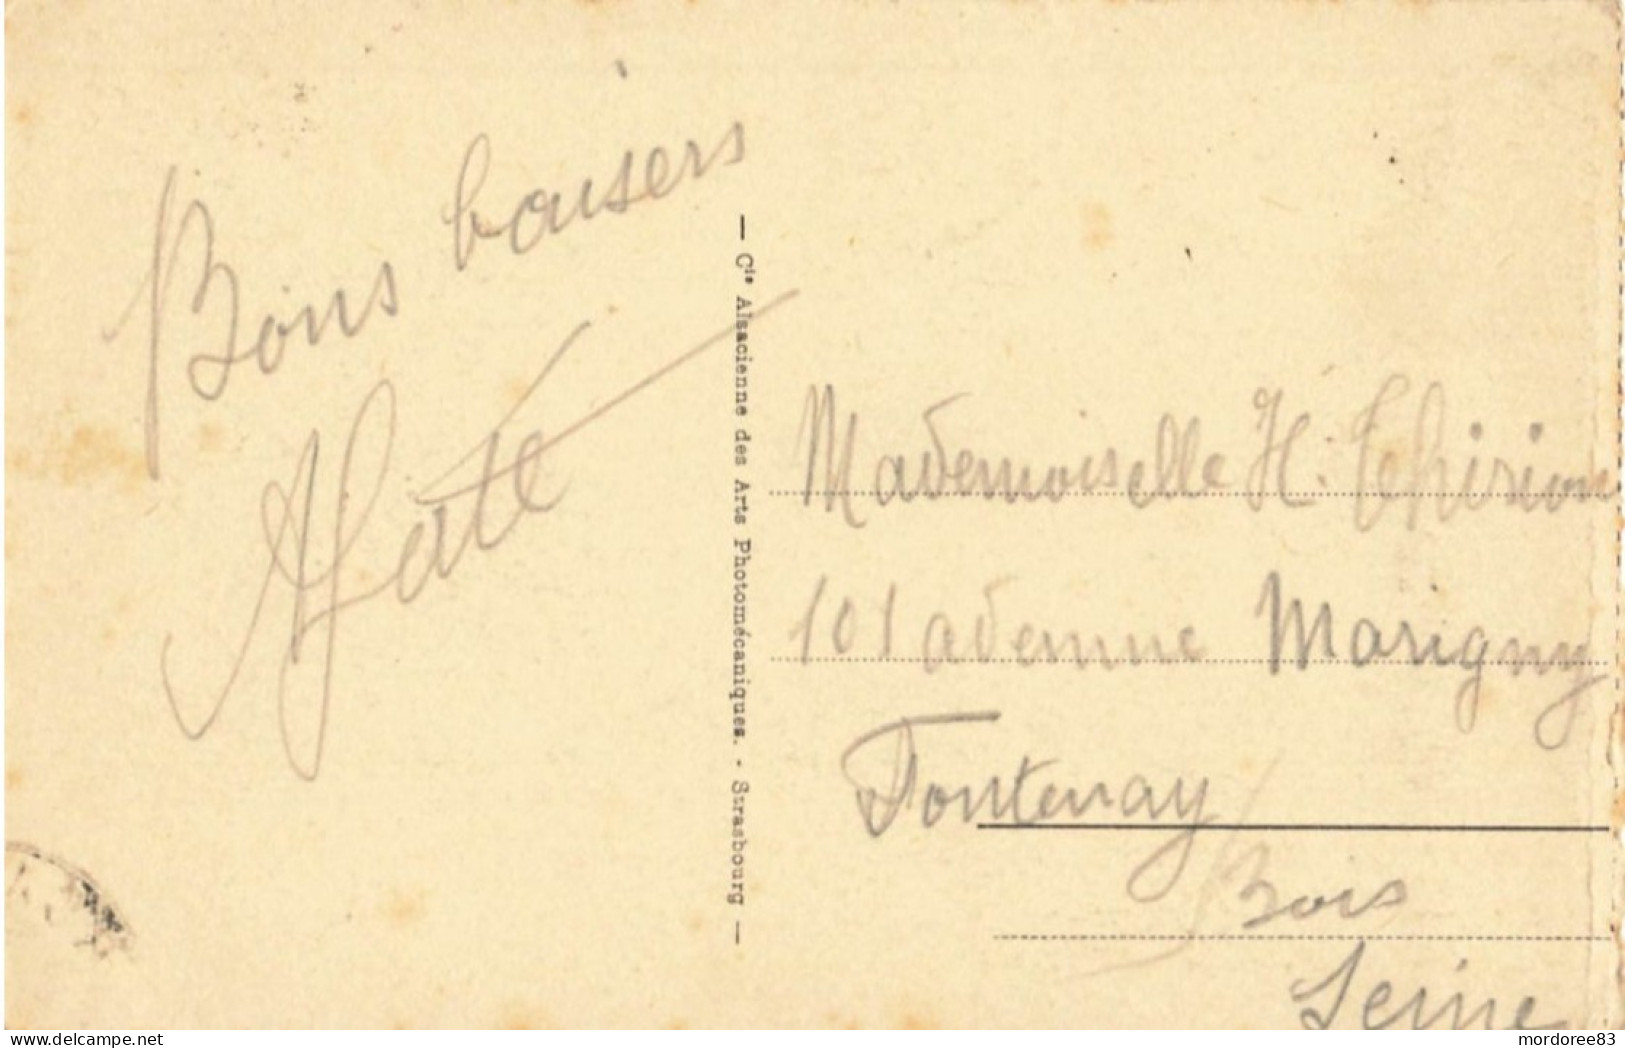 Bons baisers
— Cie Alsacienne des Arts Photomécaniques. - Strasbourg —
Mademoiselle H. Thirion
101 avenue Marigny
Fontenay
s/ Bois
Seine
www.delcampe.net
mordoree83